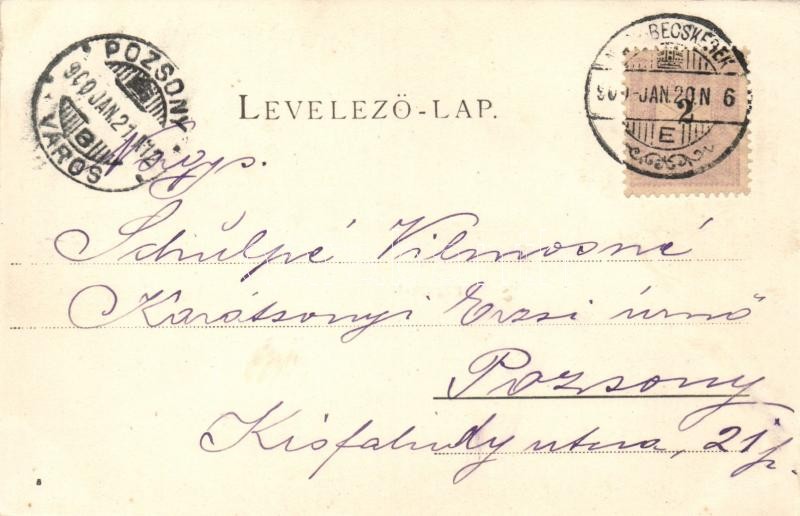 POZSONY
900 JAN. 21
VÁROS
LEVELEZŐ-LAP.
BECSKEREK
900 JAN. 20. N 6
2
E
Nags.
Schülpé Vilmosné
Karátsonyi Erzsi úrnő
Pozsony
Kisfaludy utcza, 21
8